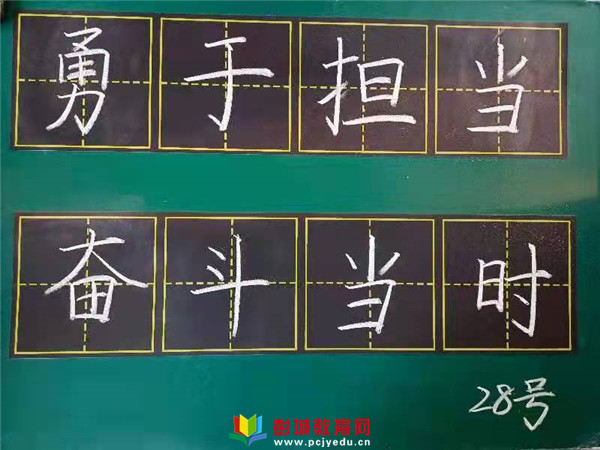 勇于担当
奋斗当时
28号
彭城教育网
www.pcjyedu.cn